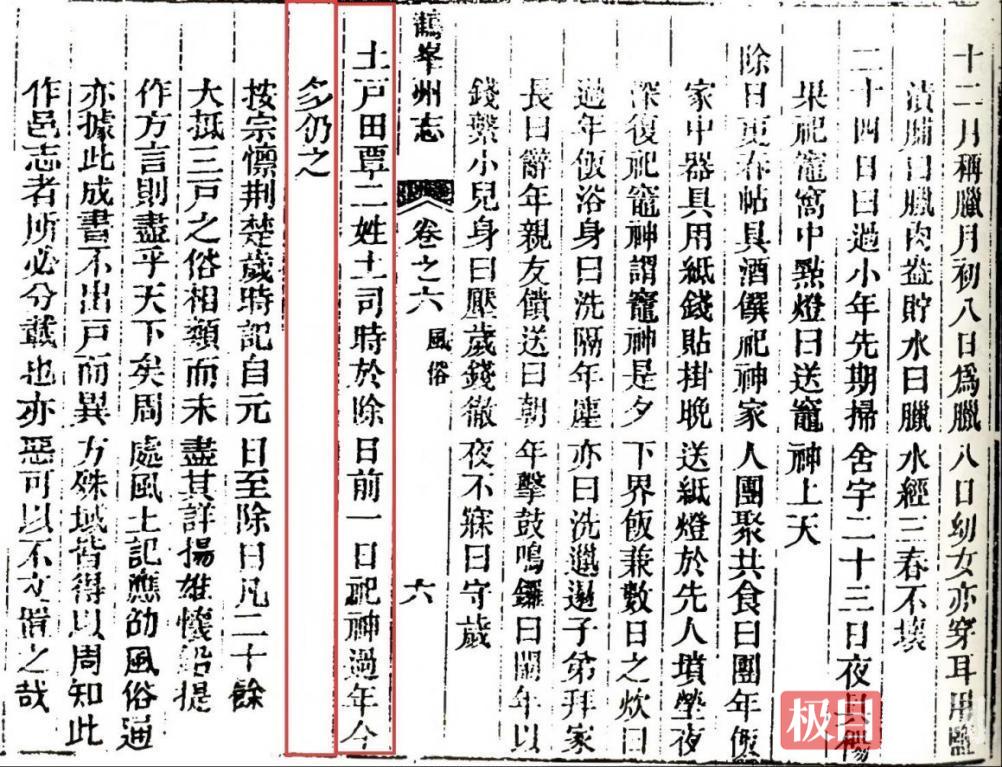 十二月稱臘月初八日爲臘八日幼女亦穿耳用鹽
漬脯曰臘肉盎貯水曰臘水經三春不壞
二十四日曰過小年先期掃舍宇二十三日夜具餳
果祀竈窩中點燈曰送竈神上天
除日更春帖具酒饌祀神家人團聚共食曰團年飯
家中器具用紙錢貼掛晚送紙燈於先人墳塋夜
深復祀竈神謂竈神是夕下界飯兼數日之炊曰
過年飯浴身曰洗隔年塵亦曰洗邋遢子弟拜家
長曰辭年親友饋送曰朝年擊鼓鳴鑼曰鬧年以
錢繫小兒身曰壓歲錢徹夜不寐曰守歲
鶴峯州志 卷之六 風俗 六
土戸田覃二姓土司時於除日前一日祀神過年今
多仍之
按宗懍荆楚歲時記自元日至除日凡二十餘
大抵三戸之俗相類而未盡其詳揚雄懷鉛提
作方言則盡乎天下矣周處風土記應劭風俗通
亦據此成書不出戸而異方殊域皆得以周知此
作邑志者所必分載也亦惡可以不文僭之哉
极目